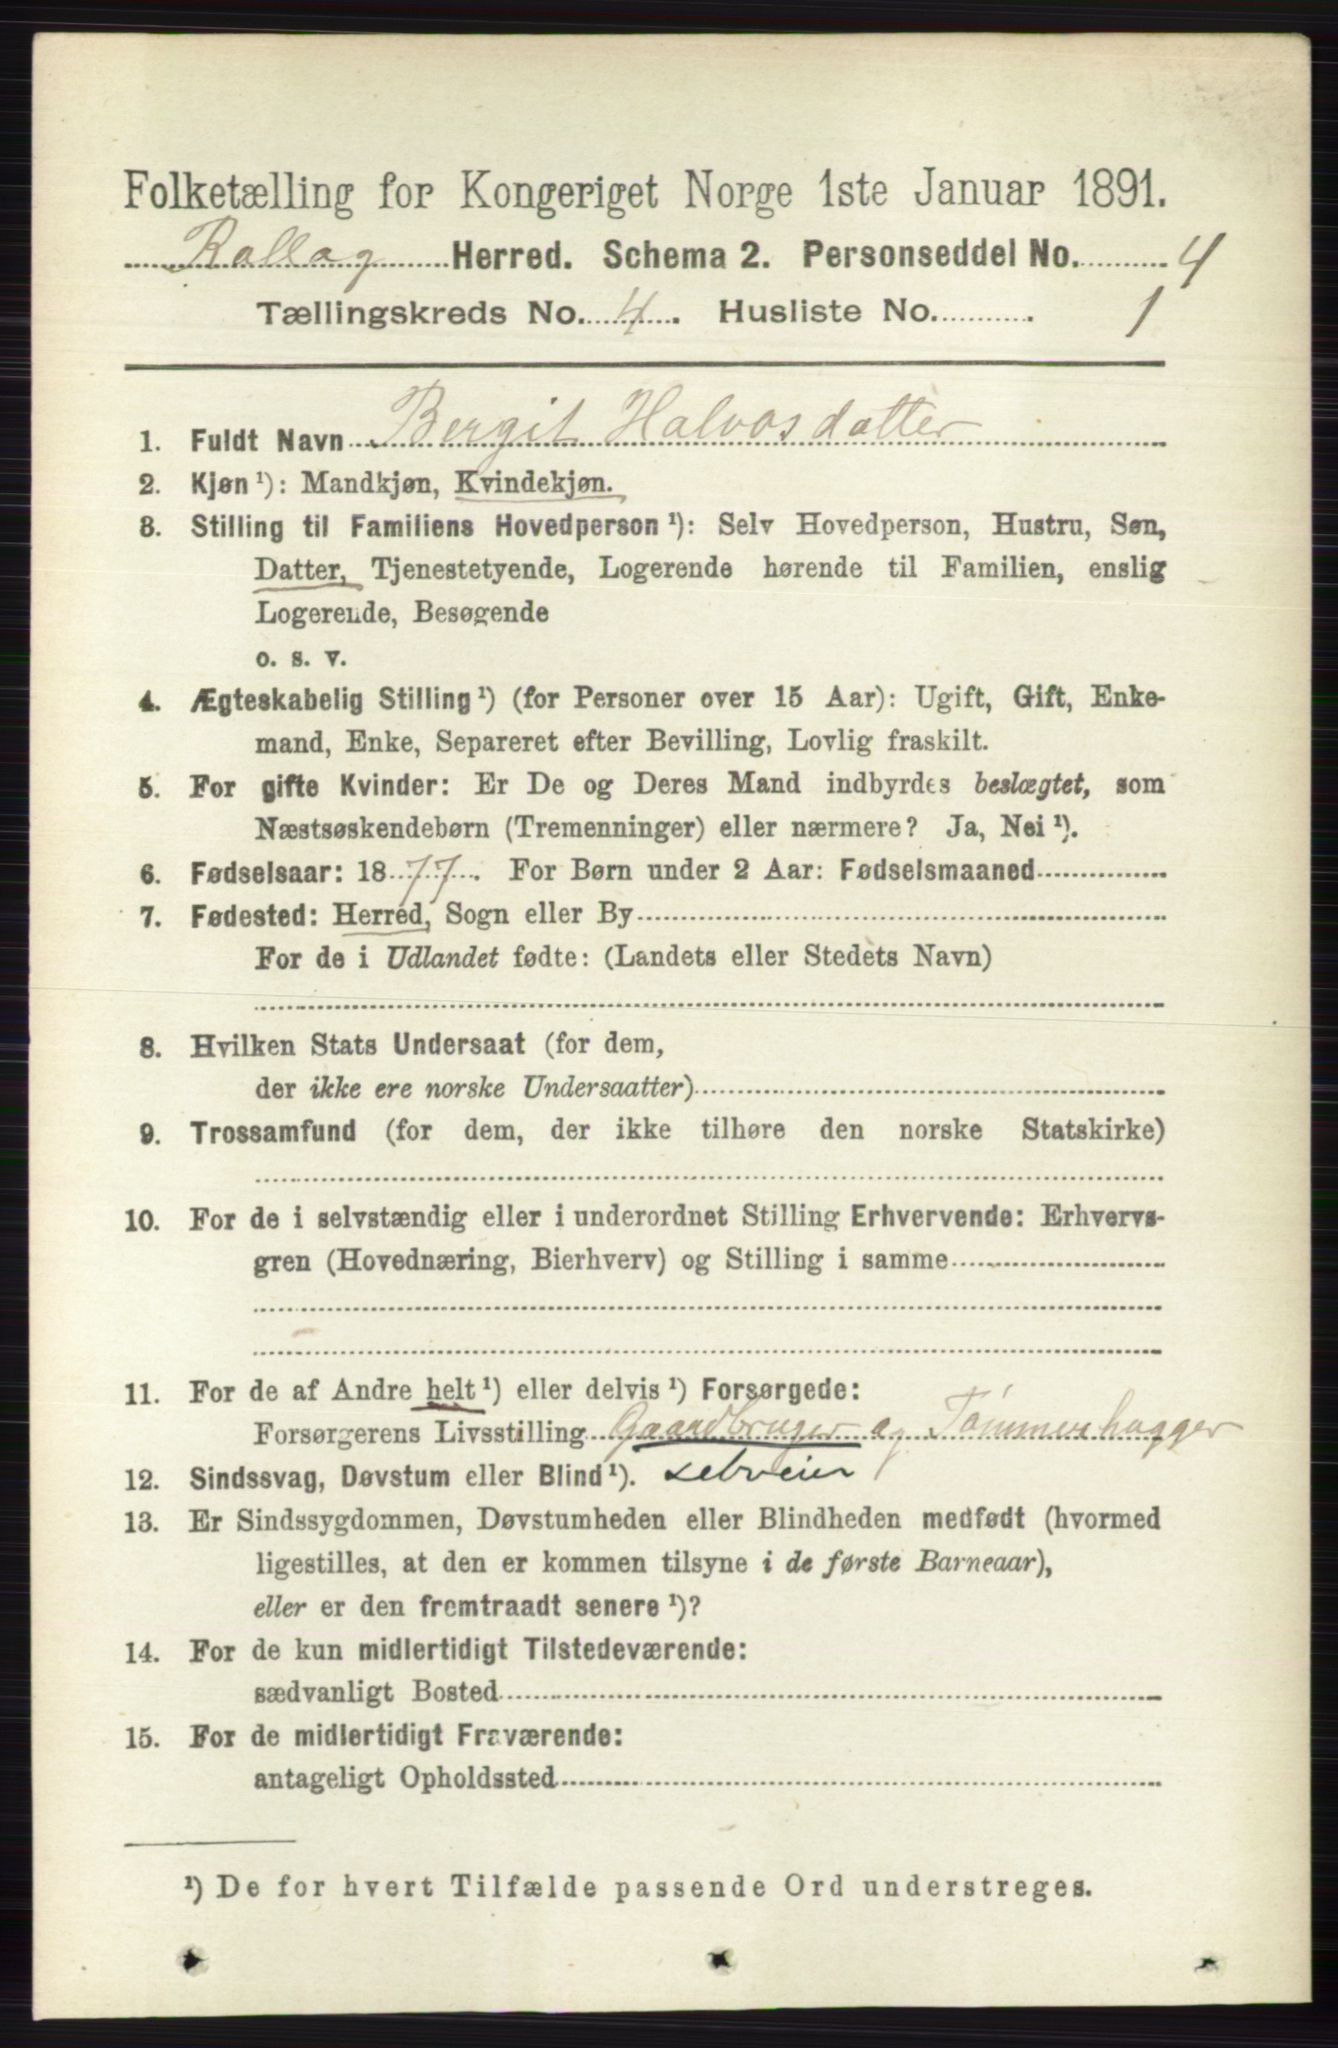 Folketælling for Kongeriget Norge 1ste Januar 1891.
Rollag Herred. Schema 2. Personseddel No. 4
Tællingskreds No. 4. Husliste No. 1
1. Fuldt Navn Bergit Halvosdatter
2. Kjøn ¹): Mandkjøn, Kvindekjøn.
3. Stilling til Familiens Hovedperson ¹): Selv Hovedperson, Hustru, Søn,
Datter, Tjenestetyende, Logerende hørende til Familien, enslig
Logerende, Besøgende
o. s. v.
4. Ægteskabelig Stilling ¹) (for Personer over 15 Aar): Ugift, Gift, Enke-
mand, Enke, Separeret efter Bevilling, Lovlig fraskilt.
5. For gifte Kvinder: Er De og Deres Mand indbyrdes beslægtet, som
Næstsøskendebørn (Tremenninger) eller nærmere? Ja, Nei ¹).
6. Fødselsaar: 1877. For Børn under 2 Aar: Fødselsmaaned
7. Fødested: Herred, Sogn eller By
For de i Udlandet fødte: (Landets eller Stedets Navn)
8. Hvilken Stats Undersaat (for dem,
der ikke ere norske Undersaatter)
9. Trossamfund (for dem, der ikke tilhøre den norske Statskirke)
10. For de i selvstændig eller i underordnet Stilling Erhvervende: Erhvervs-
gren (Hovednæring, Bierhverv) og Stilling i samme
11. For de af Andre helt ¹) eller delvis ¹) Forsørgede:
Forsørgerens Livsstilling Gaardbruger og Tømmerhugger
12. Sindssvag, Døvstum eller Blind ¹). selveier
13. Er Sindssygdommen, Døvstumheden eller Blindheden medfødt (hvormed
ligestilles, at den er kommen tilsyne i de første Barneaar),
eller er den fremtraadt senere ¹)?
14. For de kun midlertidigt Tilstedeværende:
sædvanligt Bosted
15. For de midlertidigt Fraværende:
antageligt Opholdssted
¹) De for hvert Tilfælde passende Ord understreges.